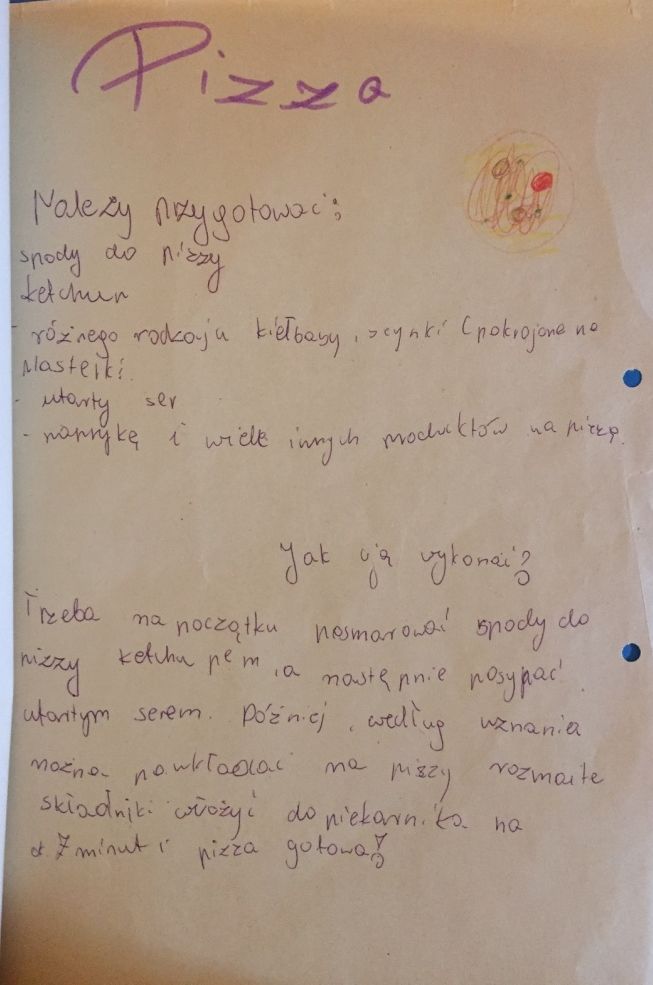 Pizza
Należy przygotować:
spody do pizzy
ketchup
- różnego rodzaju kiełbasy, szynki (pokrojone na
plasterki.
- utarty ser
- paprykę i wiele innych produktów na pizzę.
Jak ją wykonać?
Trzeba na początku posmarować spody do
pizzy ketchupem, a następnie posypać
utartym serem. Później, według uznania
można powkładać na pizzy rozmaite
składniki włożyć do piekarnika na
7 minut i pizza gotowa!